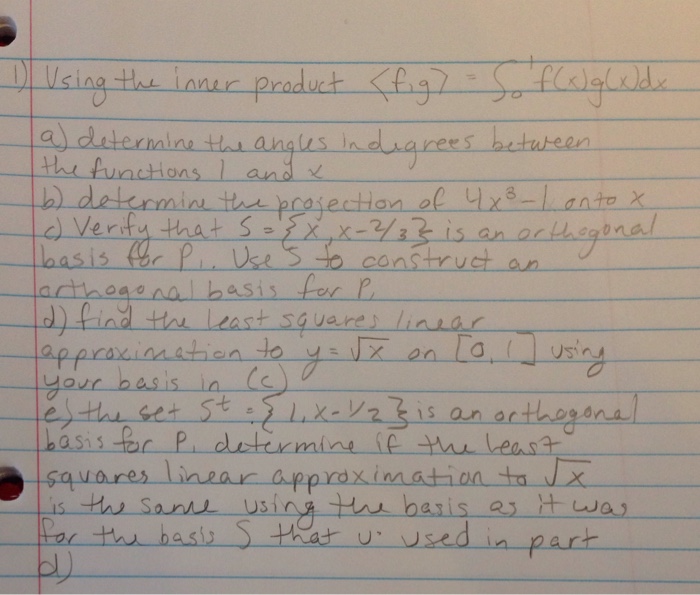 1) Using the inner product <f,g> = ∫₀¹ f(x)g(x)dx
a) determine the angles in degrees between
the functions 1 and x
b) determine the projection of 4x³-1 onto x
c) Verify that S = {x, x-2/3} is an orthogonal
basis for P₁. Use S to construct an
orthogonal basis for P₁
d) find the least squares linear
approximation to y = √x on [0, 1] using
your basis in (c)
e) the set St = {1, x-1/2} is an orthogonal
basis for P₁ determine if the least
squares linear approximation to √x
is the same using the basis as it was
for the basis S that u. used in part
d)